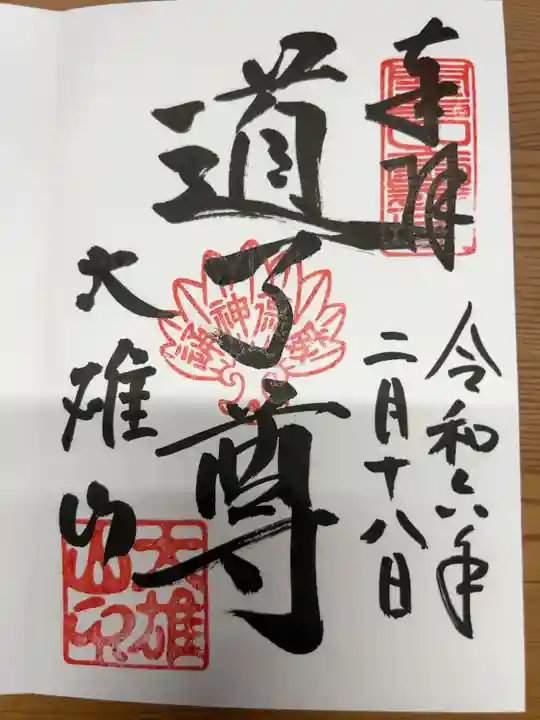 奉拝
令和六年
二月十八日
道了尊
大雄山
大雄
山印